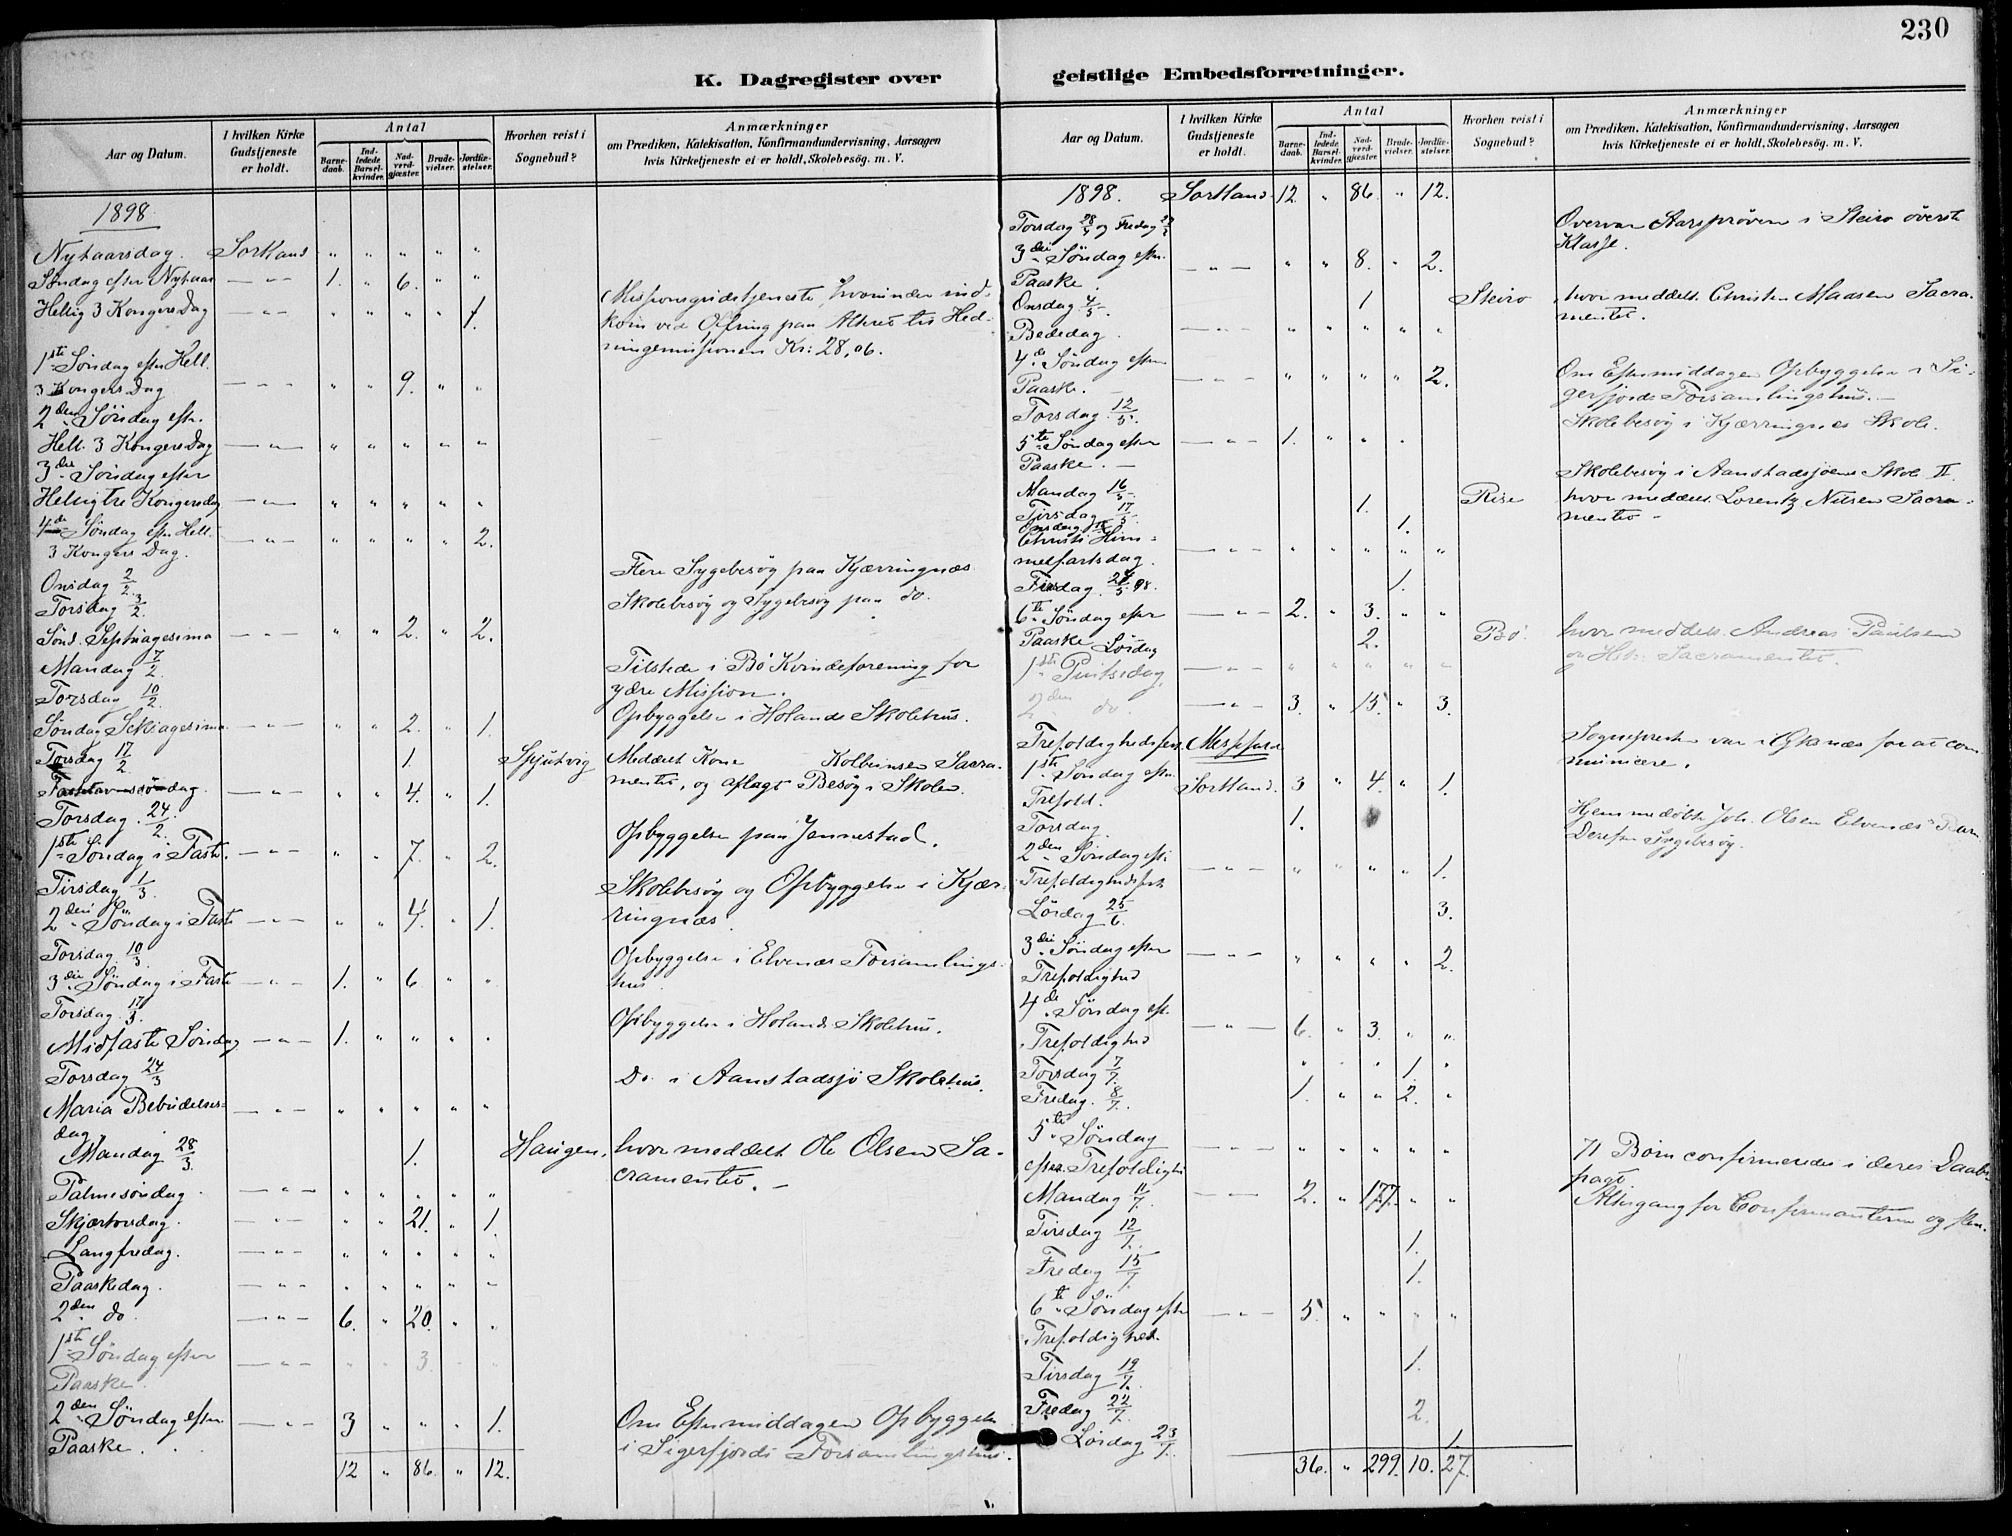 230
K. Dagregister over
geistlige Embedsforretninger.
Aar og Datum.
I hvilken Kirke
Gudstjeneste
er holdt.
Antal
Barne-
daab.
Ind-
ledede
Barsel-
kvinder.
Nad-
verd-
gjæster.
Brude-
vielser.
Jordfæ-
stelser.
Hvorhen reist i
Sognebud?
Anmærkninger
om Prædiken, Katekisation, Konfirmandundervisning, Aarsagen
hvis Kirketjeneste ei er holdt, Skolebesög. m. V.
1898
Nytaarsdag. Sortland " " " " "
Søndag efter Nytaar — " — 1. " 6. " "
Hellig 3 Kongers Dag — " — " " " " 1.
Missionsgudstjeneste, hvorunder ind-
kom ved Offring paa Alteret til Hed-
ningemissionen Kr: 28,06.
1ste Søndag efter Hell.
3 Kongers Dag — " — " " 9. " "
2den Søndag eftr.
Hell. 3 Kongers Dag — " — " " " " "
3die Søndag efter
Helligtre Kongersdag — " — " " " " "
4de Søndag eftr Hell.
3 Kongers Dag. — " — " " " " 2.
Onsdag 2/2. Flere Sygebesøg paa Kjærringnæs
Torsdag 3/2 Skolebesøg og Sygebesøg paa do.
Sønd. Septuagesima — " — " " 2. " 2.
Mandag 7/2. Tilstede i Bø Kvindeforening for
ydre Mission.
Torsdag 10/2 Opbyggelse i Holands Skolehus.
Søndag Seksagesima — " — " " 2. " 1.
Torsdag 17/2 1. Spjutvig Meddelt Kone Kolbeinsen Sacra-
mentet, og aflagt Besøg i Skolen.
Fastelavnssøndag. — " — " " 4. " 1.
Torsdag 24/2. Opbyggelse paa Jennestad.
1ste Søndag i Faste. — " — " " 7. " 2.
Tirsdag 1/3 Skolebesøg og Opbyggelse i Kjær-
ringnæs.
2den Søndag i Faste — " — " " 4. " 1.
Torsdag 10/3 Opbyggelse i Elvenæs Forsamlings-
hus
3die Søndag i Faste — " — 1. " 6. " "
Torsdag 17/3. Opbyggelse i Holands Skolehus.
Midfaste Søndag — " — 1. " " " "
Torsdag 24/3 Do. i Aanstadsjø Skolehus.
Maria Bebudelses-
dag. — " — " " " " "
Mandag 28/3 1. Haugen, hvor meddelt Ole Olsen Sa-
cramentet. —
Palmesøndag. — " — " " " " "
Skjærtorsdag. — " — " " 21. " 1.
Langfredag. — " — " " " " "
Paaskedag. — " — " " " " "
2den do — " — 6. " 20. " "
1ste Søndag efter
Paaske. — " — " " 3 " "
2den Søndag efter
Paaske. — " — 3 " " " 1.
Om Eftermiddagen Opbyggelse
i Sigerfjords Forsamlingshus.
12 " 86. " 12.
Aar og Datum.
I hvilken Kirke
Gudstjeneste
er holdt.
Antal
Barne-
daab.
Ind-
ledede
Barsel-
kvinder.
Nad-
verd-
gjæster.
Brude-
vielser.
Jordfæ-
stelser.
Hvorhen reist i
Sognebud?
Anmærkninger
om Prædiken, Katekisation, Konfirmandundervisning, Aarsagen
hvis Kirketjeneste ei er holdt, Skolebesög. m. V.
1898. Sortland 12. " 86. " 12.
Torsdag 28/4 og Fredag Overvar Aarsprøven i Steiro øverste
Klasse.
3die Søndag eftr.
Paaske — " — " " 8. " 2.
Onsdag 4/5. 1 Steiro, hvor meddelt Christen Madsen Sacra-
mentet.
Bededag. — " — " " " " "
4de Søndag efter
Paaske. — " — " " " " 2.
Om Eftermiddagen Opbyggelse i Si-
gerfjords Forsamlingshus.—
Torsdag 12/5. Skolebesøg i Kjærringnes Skole.
5te Søndag efter
Paaske. — " — 1. " " "
Mandag 16/5. Skolebesøg i Aanstadsjøens Skole II.
Tirsdag 17/5. 1. Rise hvor meddelt Lorentz Nilsen Sacra-
mentet —
Onsdag 18/5 1.
Christi Him-
melfartsdag. — " — " " " " "
Tirsdag. 24/5 98. 1.
6te Søndag efter
Paaske — " — 2. " 3. " "
Lørdag 2. Bø. hvor meddelt Andreas Paulsen
og Hst: Sacramentet.
1ste Pintsedag, — " — " " " " "
2den do. — " — 3. " 15. " 3.
Trefoldighedsfest Messefald
Sognepresten var i Øksnæs for at com-
municere.
1ste Søndag eftr
Trefold. Sortland. 3 " 4. " 1.
Torsdag. 1. Hjemmedøbt Joh. Olsen Elvenæs Barn
Derefter Sygebesøg.
2den Søndag eft.
Trefoldighedsfest — " — " " " " 1.
Lørdag 25/6. 3.
3die Søndag efter
Trefoldighed — " — " " " " 2.
4de Søndag ef.
Trefoldighed — " — 6. " 3. " "
Torsdag 7/7. " " " 1. "
Fredag. 8/7. 1. " " 2. "
5te Søndag
efter Trefoldighed — " — " " " " "
71 Børn confirmeredes i deres Daabs-
pagt.
Mandag 11/7. — " — 2. " 177. " "
Altergang for Confirmanterne og flere.
Tirsdag 12/7. 1.
Fredag 15/7. 1.
6te Søndag efter
Trefoldighed. — " — 5. " " " "
Tirsdag 19/7. 1.
Fredag 22/7. 2.
Lørdag 23/7. 1.
36. " 299. 10. 27.